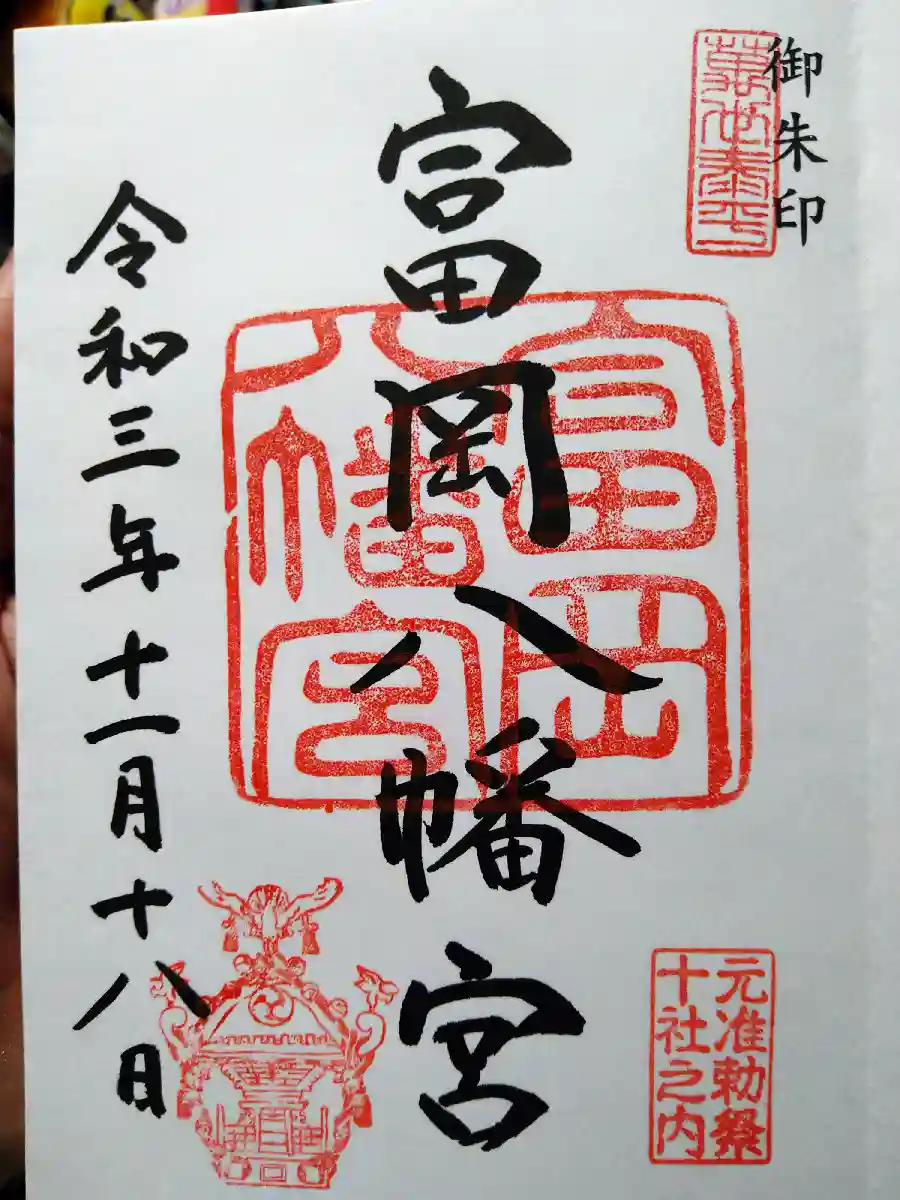 御朱印
萬世泰平
富岡八幡宮
富岡
八幡宮
元准勅祭
十社之内
令和三年十一月十八日